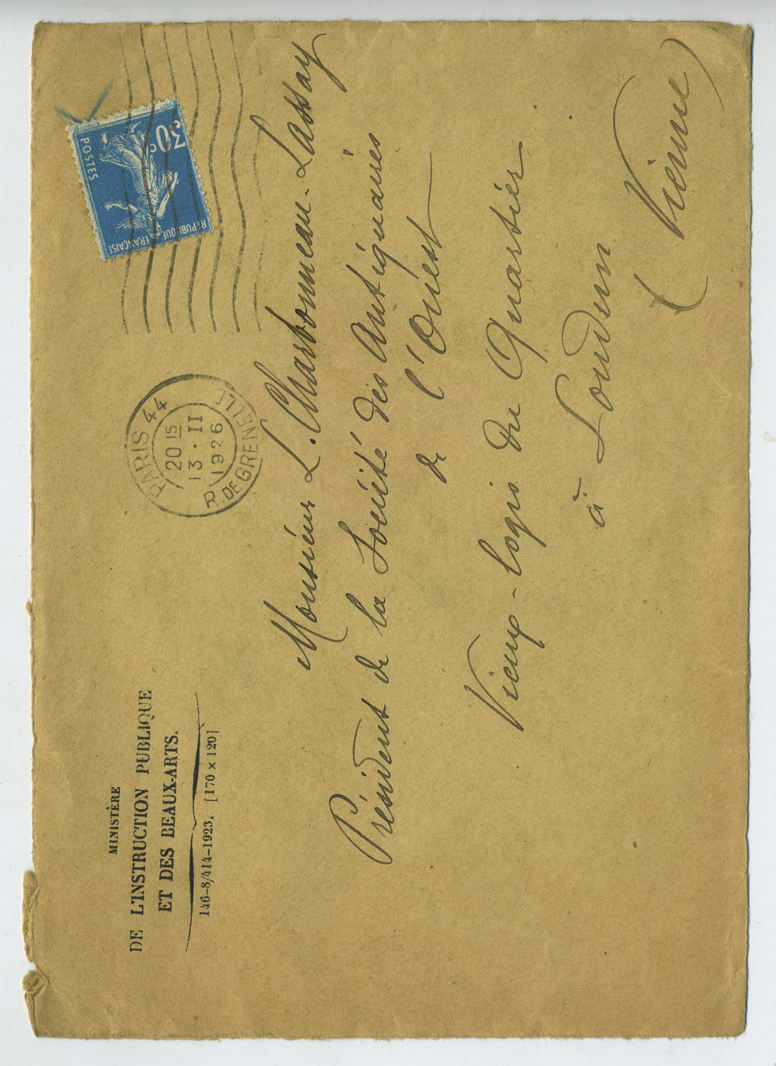 MINISTÈRE
DE L'INSTRUCTION PUBLIQUE
ET DES BEAUX-ARTS.
146-8/414-1923. [170 x 120]
PARIS 44
20 15
13 · II
1926
R. DE GRENELLE
30c
POSTES
REPUBLIQUE FRANÇAISE
Monsieur L. Charbonneau-Lassay
Président de la Société des Antiquaires
de l'Ouest
Vieux-logis du Quartier
à Loudun
(Vienne)